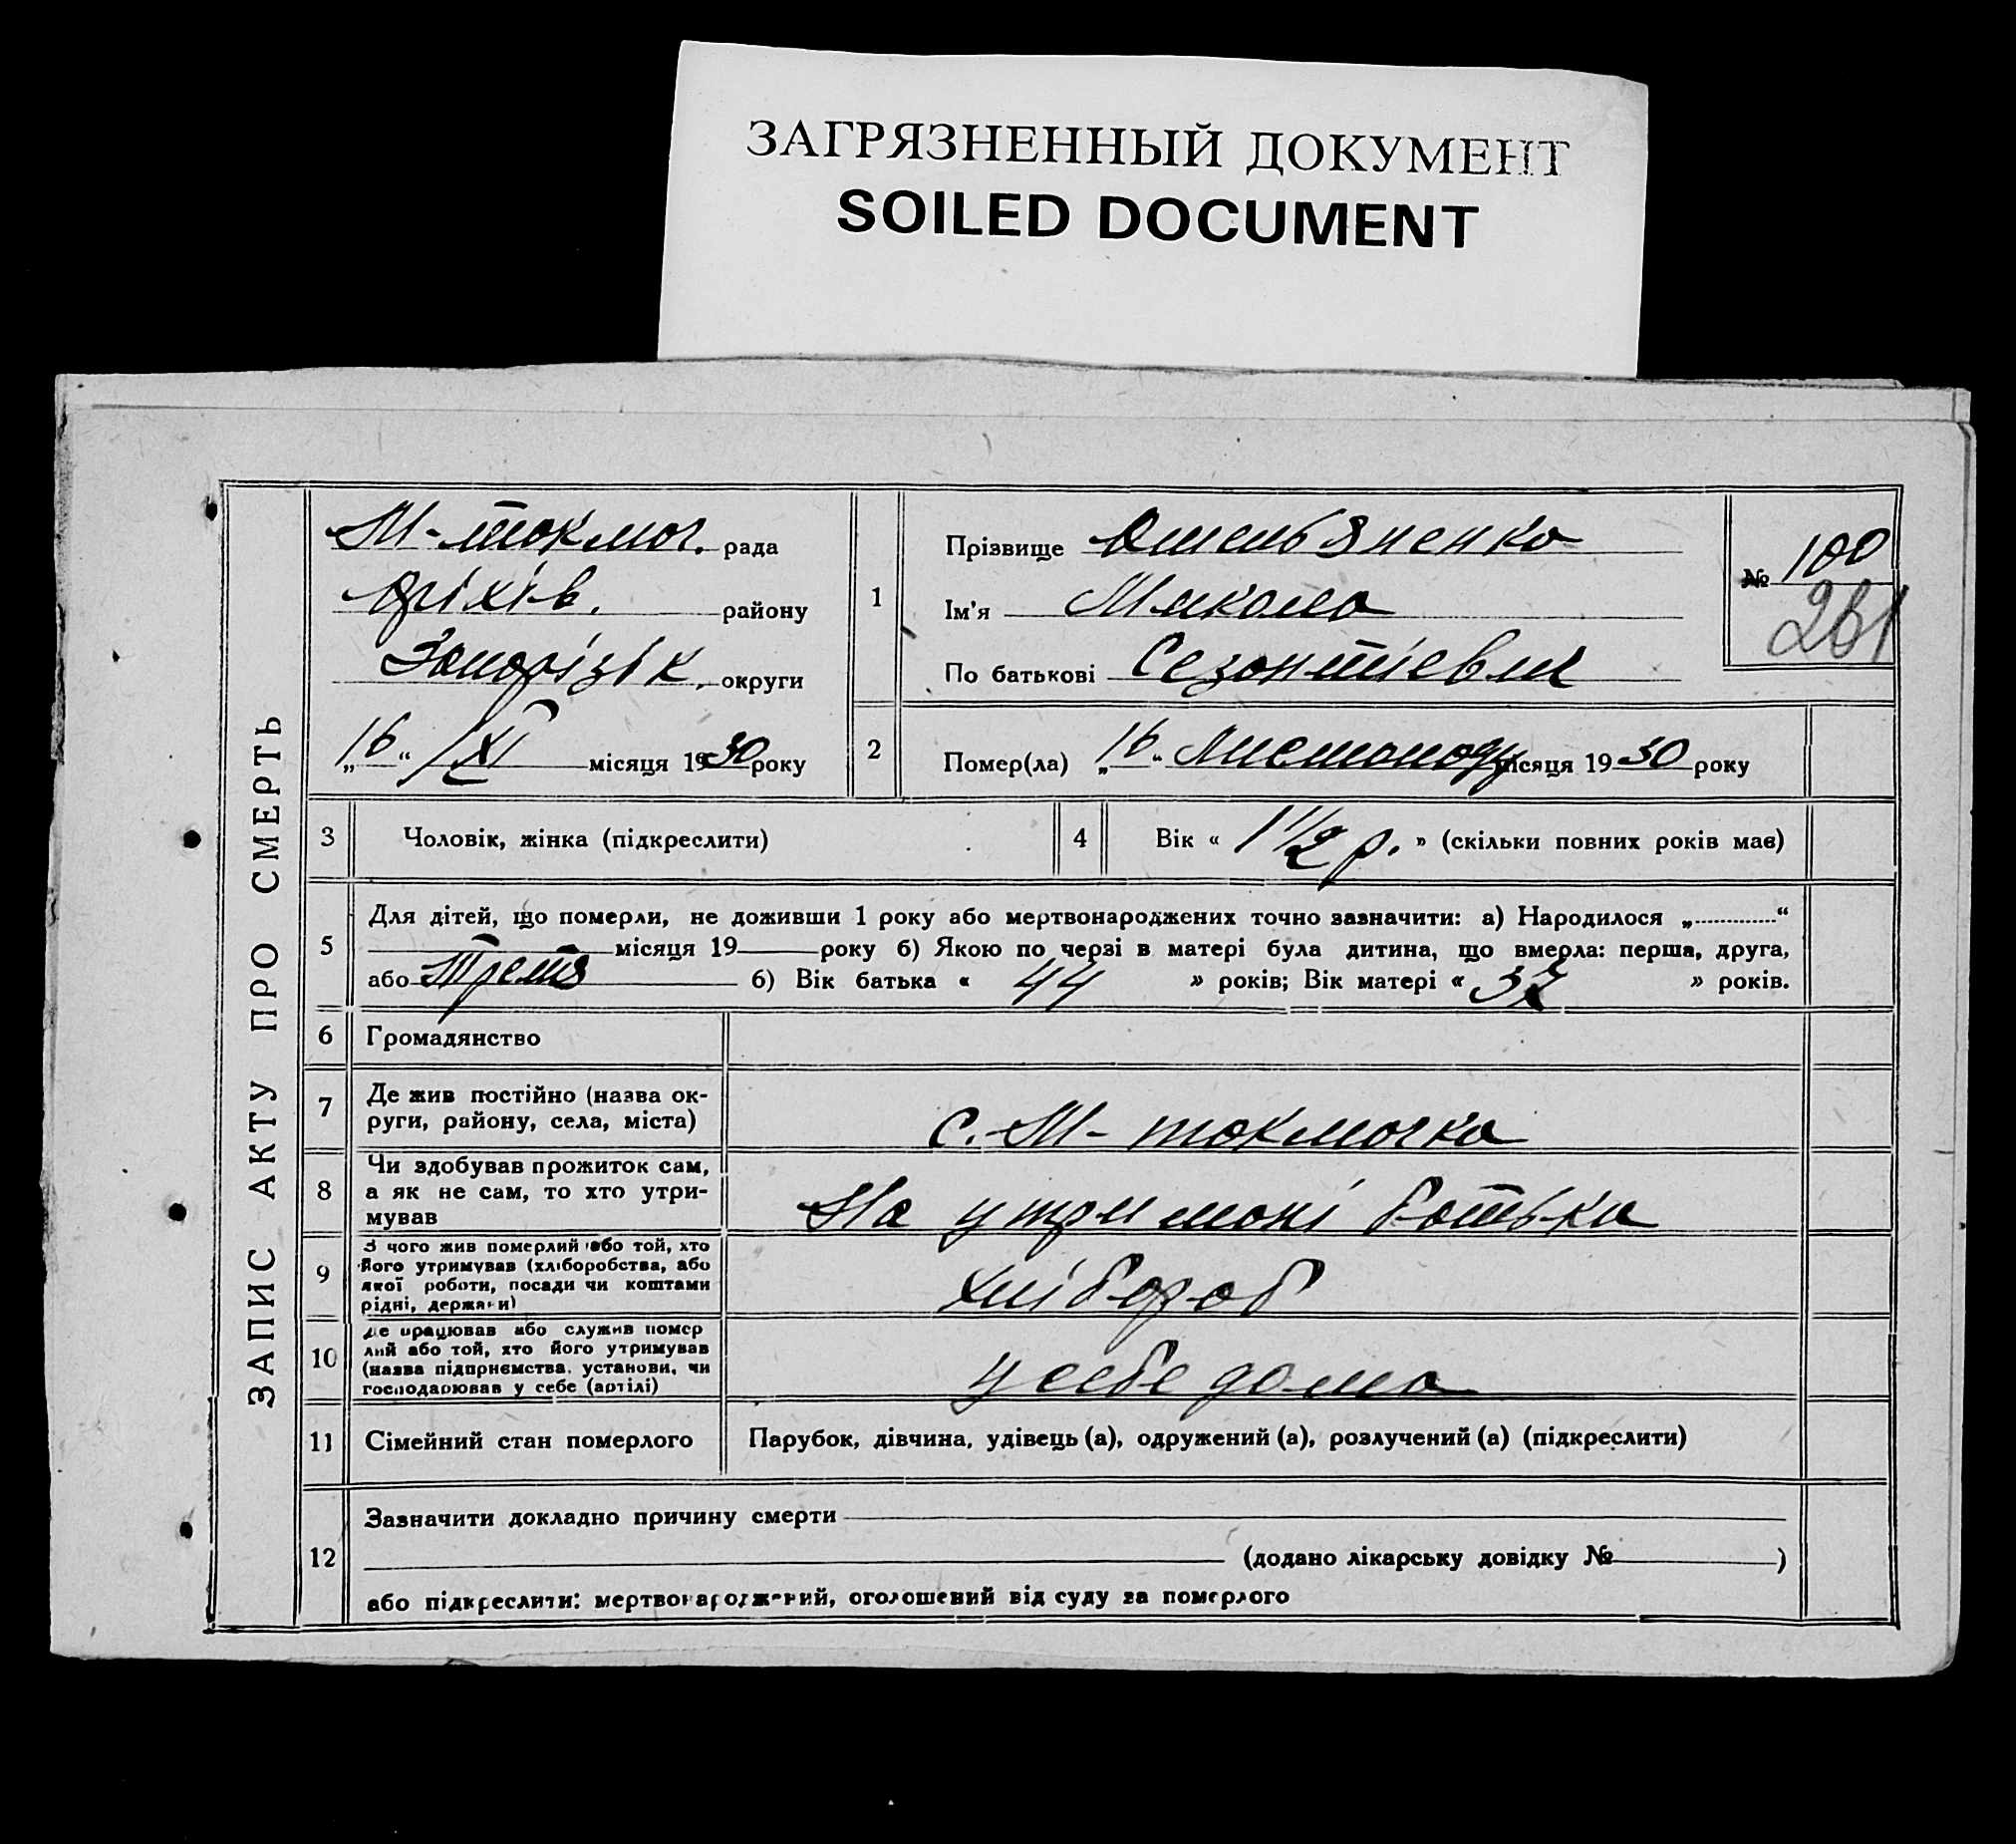 ЗАГРЯЗНЕННЫЙ ДОКУМЕНТ
SOILED DOCUMENT
ЗАПИС АКТУ ПРО СМЕРТЬ
М-токмач. рада
Оріхів. району
Запорізік. округи
„16“ /XI місяця 1930 року
1
Прізвище Омельяненко
Ім'я Микола
По батькові Созонтіевич
№ 100
261
2
Помер(ла) „16“ Листопаду місяця 1930 року
3 Чоловік, жінка (підкреслити)
4 Вік « 1 1/2 р. » (скільки повних років має)
5
Для дітей, що померли, не доживши 1 року або мертвонароджених точно зазначити: а) Народилося „ “
місяця 19 року б) Якою по черзі в матері була дитина, що вмерла: перша, друга,
або Третя б) Вік батька « 44 » років; Вік матері « 37 » років.
6 Громадянство
7
Де жив постійно (назва ок-
руги, району, села, міста)
с. М-токмачка
8
Чи здобував прожиток сам,
а як не сам, то хто утри-
мував
На утримані батька
9
З чого жив померлий або той, хто
його утримував (хліборобства, або
якої роботи, посади чи коштами
рідні, держави)
хлібороб
10
Де працював або служив помер
лий або той, хто його утримував
(назва підприємства, установи, чи
господарював у себе (артілі)
у себе дома
11 Сімейний стан померлого
Парубок, дівчина, удівець (а), одружений (а), розлучений (а) (підкреслити)
12
Зазначити докладно причину смерти
(додано лікарську довідку № )
або підкреслити: мертвонароджений, оголошений від суду за померлого